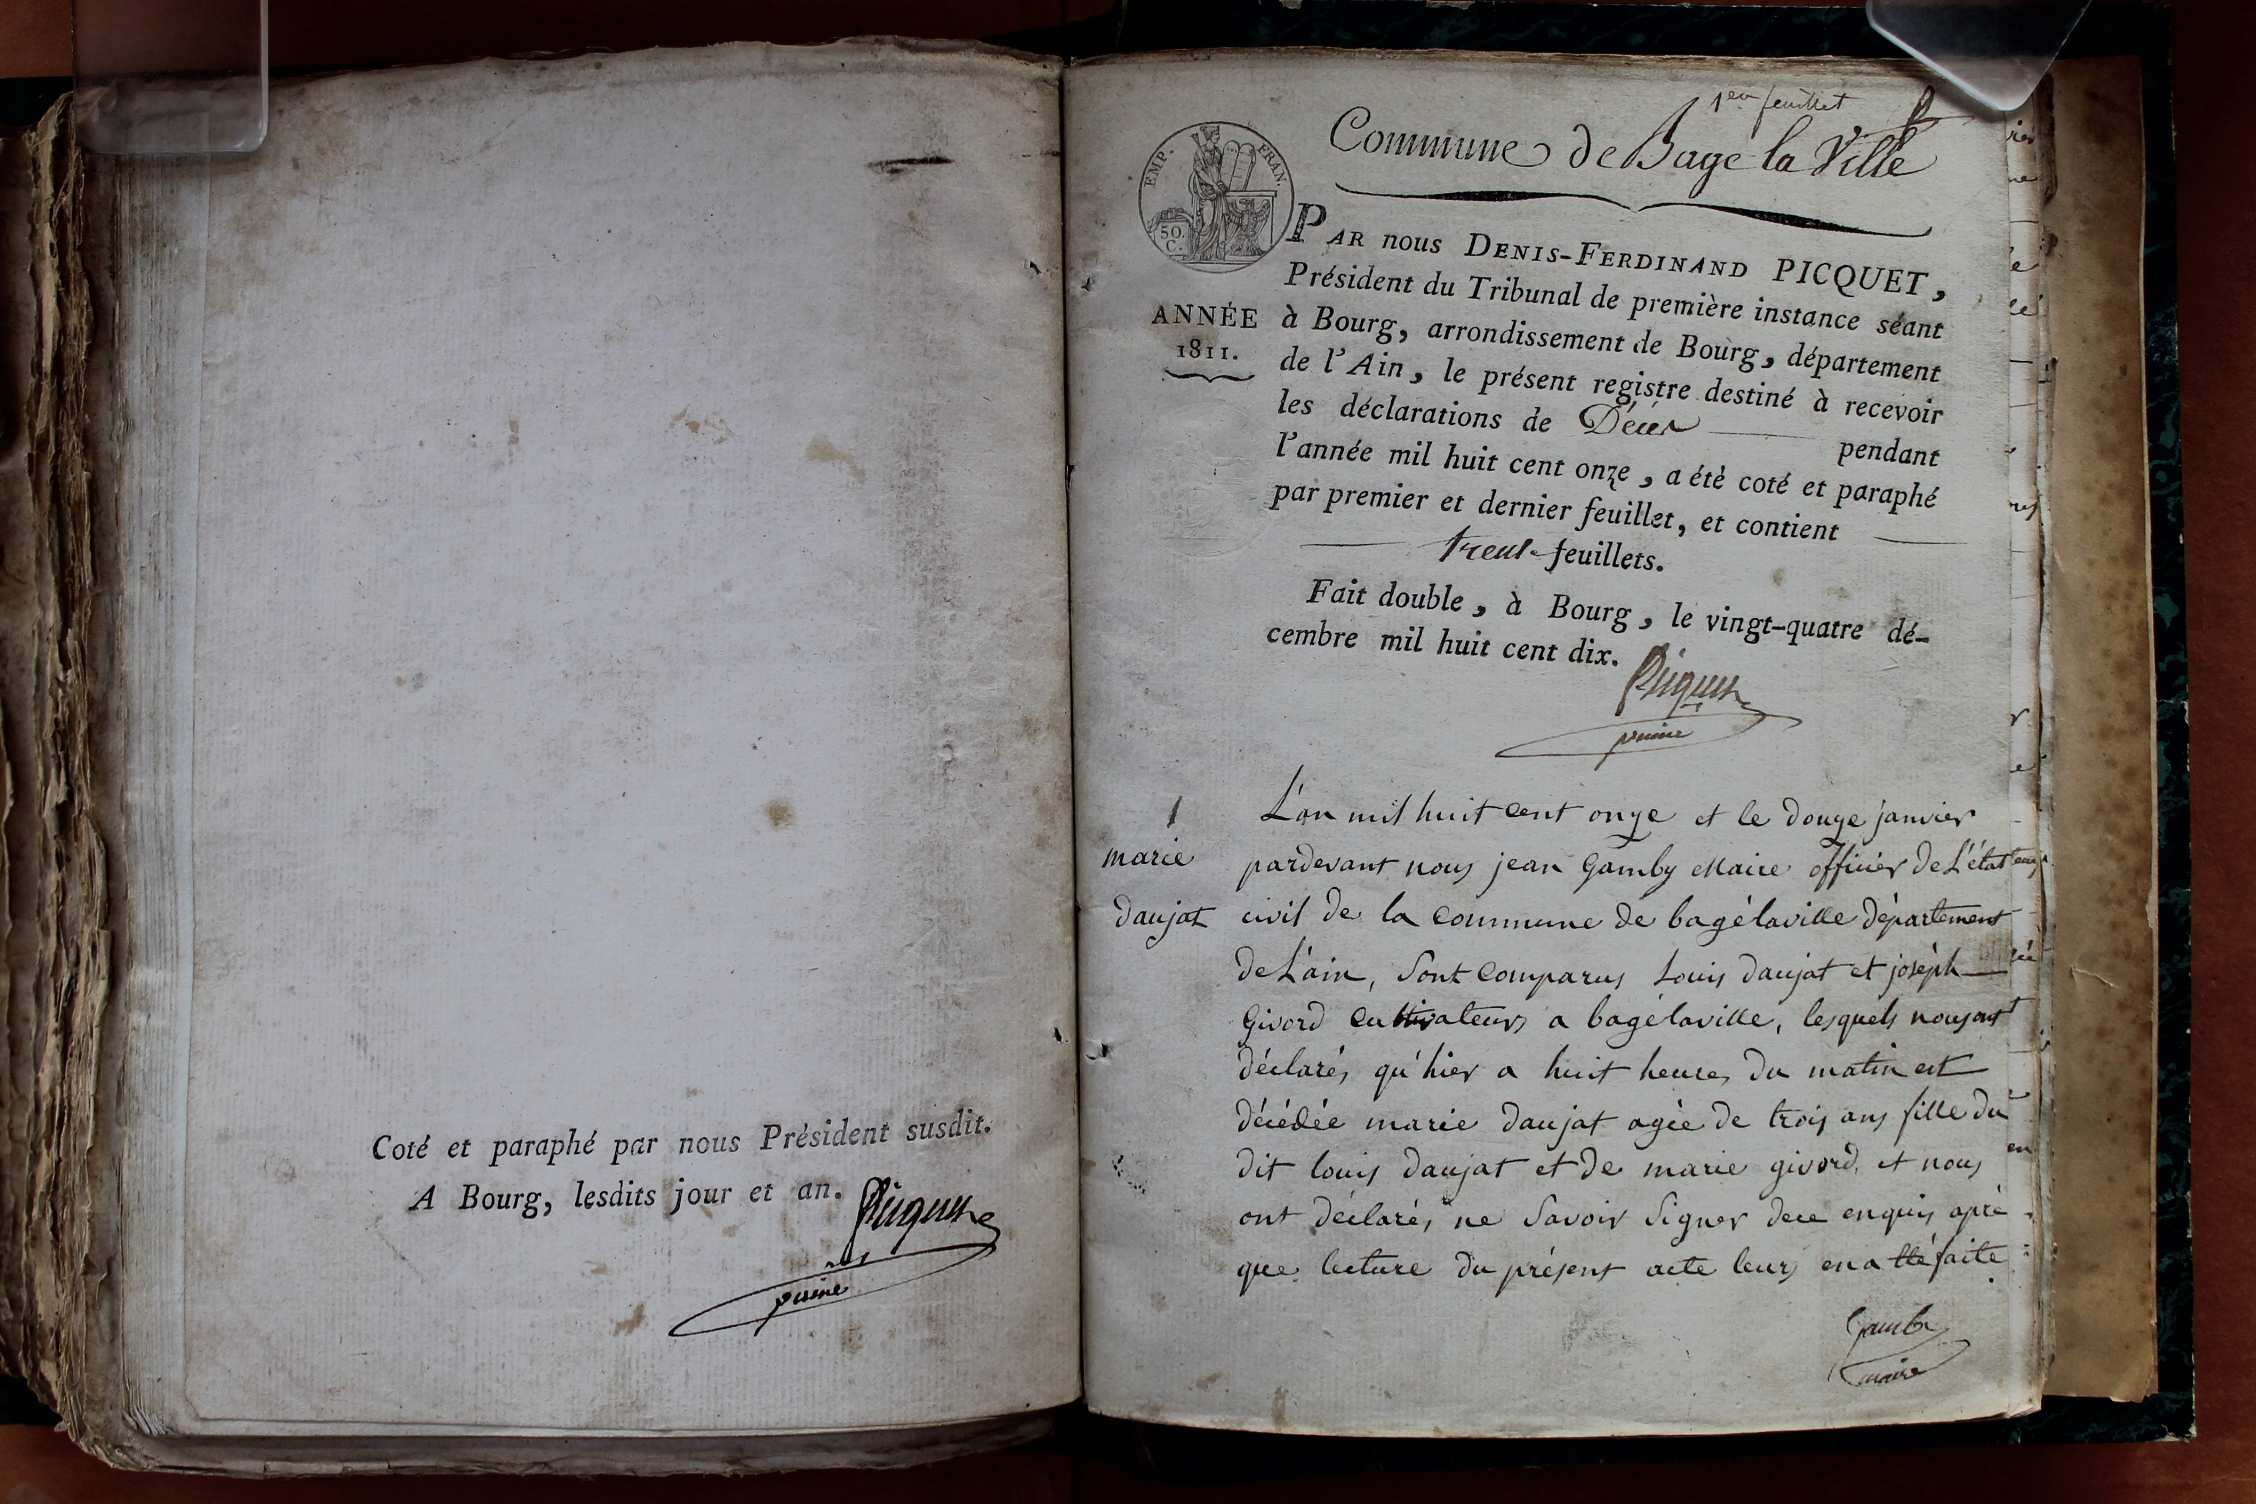 Coté et paraphé par nous Président susdit.
A Bourg, lesdits jour et an.
Picquet
1er feuillet
Commune de Bagé la Ville
EMP. FRAN.
50.
C.
ANNÉE
1811.
PAR nous DENIS-FERDINAND PICQUET,
Président du Tribunal de première instance séant
à Bourg, arrondissement de Bourg, département
de l'Ain, le présent registre destiné à recevoir
les déclarations de Décès pendant
l'année mil huit cent onze, a été coté et paraphé
par premier et dernier feuillet, et contient
trente feuillets.
Fait double, à Bourg, le vingt-quatre dé-
cembre mil huit cent dix.
Picquet
1
marie
daujat
L'an mil huit cent onze et le douze janvier
pardevant nous jean Gamby Maire officier de L'état
civil de la commune de bagélaville département
de L'ain, sont comparus Louis daujat et joséph
Givord cultivateurs a bagélaville, lesquels nous ont
déclarés qu'hier a huit heures du matin est
décédée marie daujat agée de trois ans fille du
dit louis daujat et de marie givord, et nous
ont déclarés ne savoir signer de ce enquis aprè
que lecture du présent acte leurs en a été faite
Gamby
maire